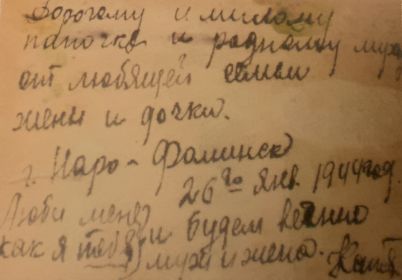 Дорогому и милому
папочке и родному мужу
от любящей семьи
жены и дочки.
г. Наро-Фоминск
26го янв. 1944 год.
Люби меня
как я тебя, и будем вечно
муж и жена. Катя